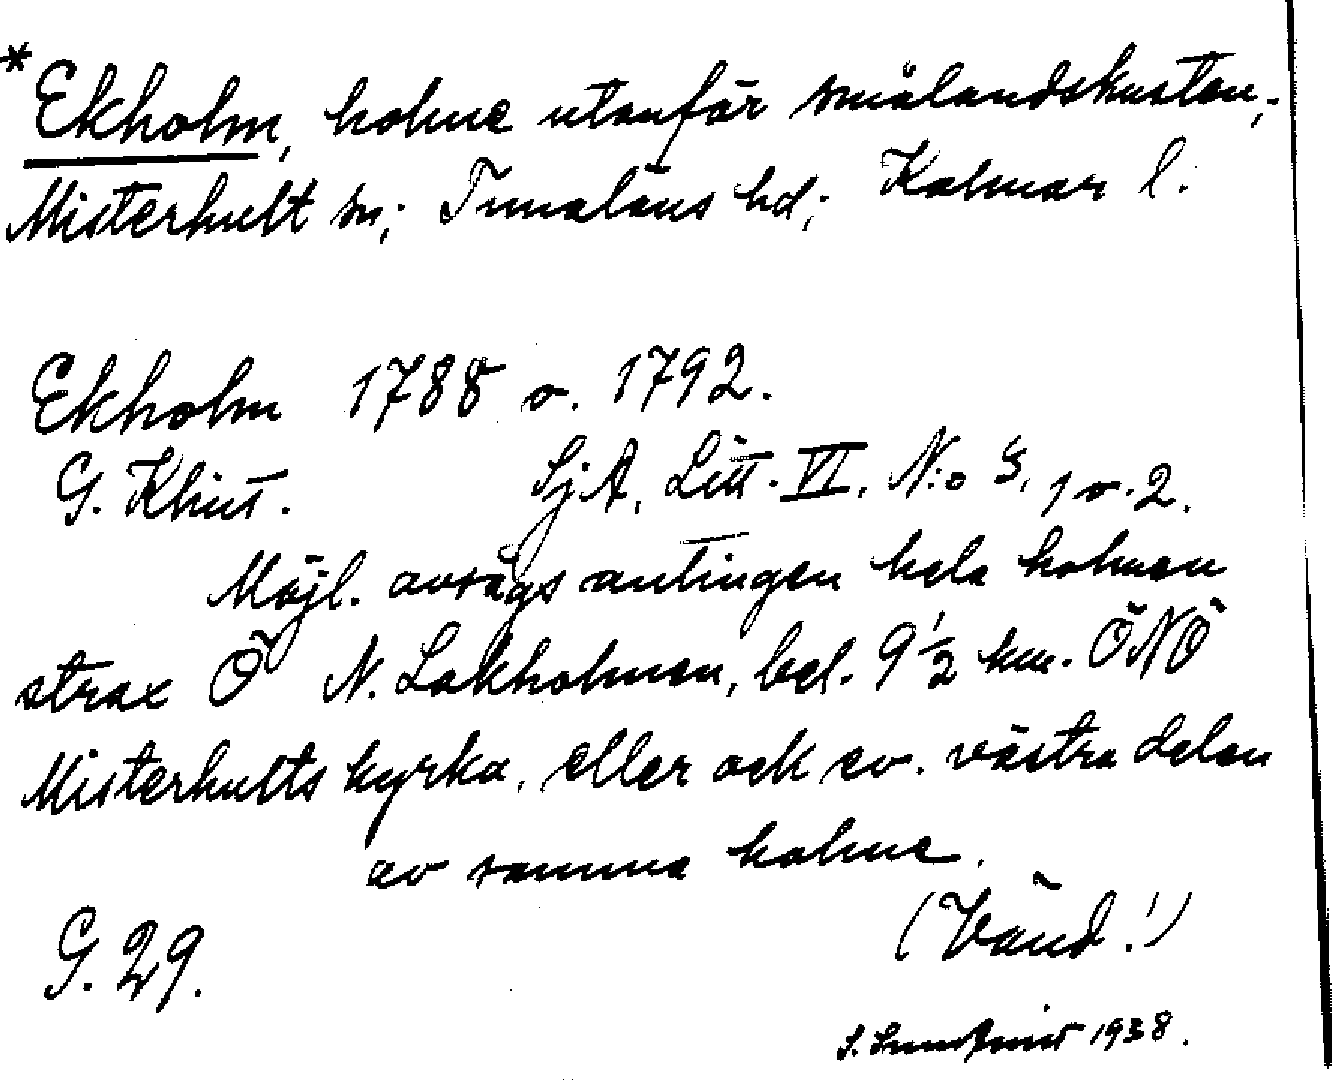 *Ekholm, holme utanför smålandskusten,
Misterhult sn, Tunaläns hd, Kalmar l.
Ekholm 1788 o. 1792.
G. Klint. SjA, Litt. VI, N:o 3, 1 o. 2.
Möjl. avsågs antingen hela holmen
strax Ö N. Lökholmen, bel. 9 1/2 km. ÖNÖ
Misterhults kyrka, eller ock ev. västra delen
av samma holme.
(Vänd!)
G. 29.
S. 1938.